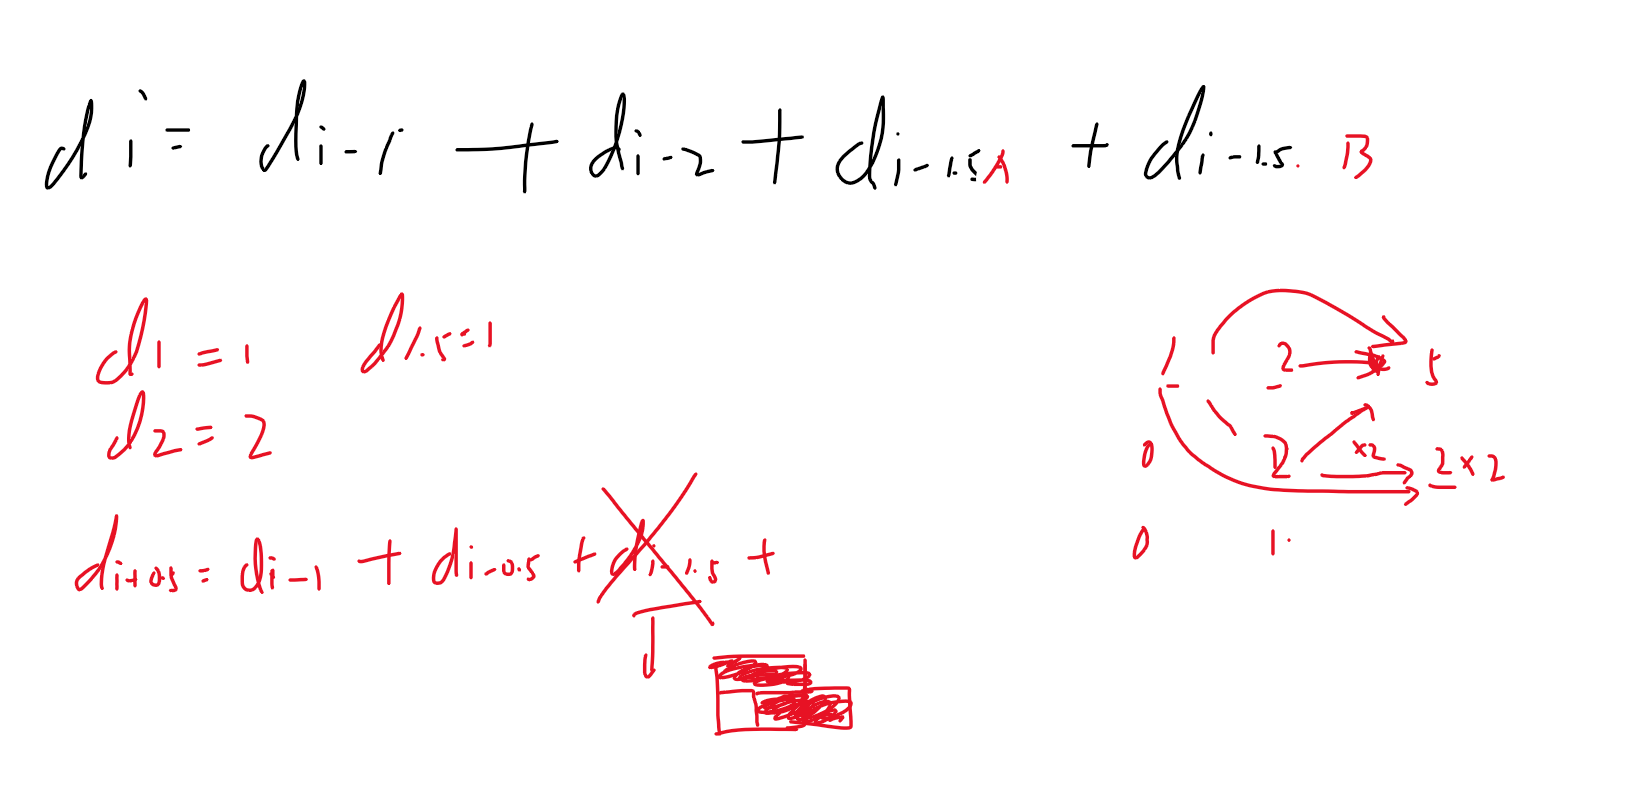 di = di-1 + di-2 + di-1.5A + di-1.5. B
d1 = 1 d1.5=1
d2 = 2
di+0.5 = di-1 + di-0.5 + di-1.5 +
1 2 5
0 ×2 2×2
0 1.